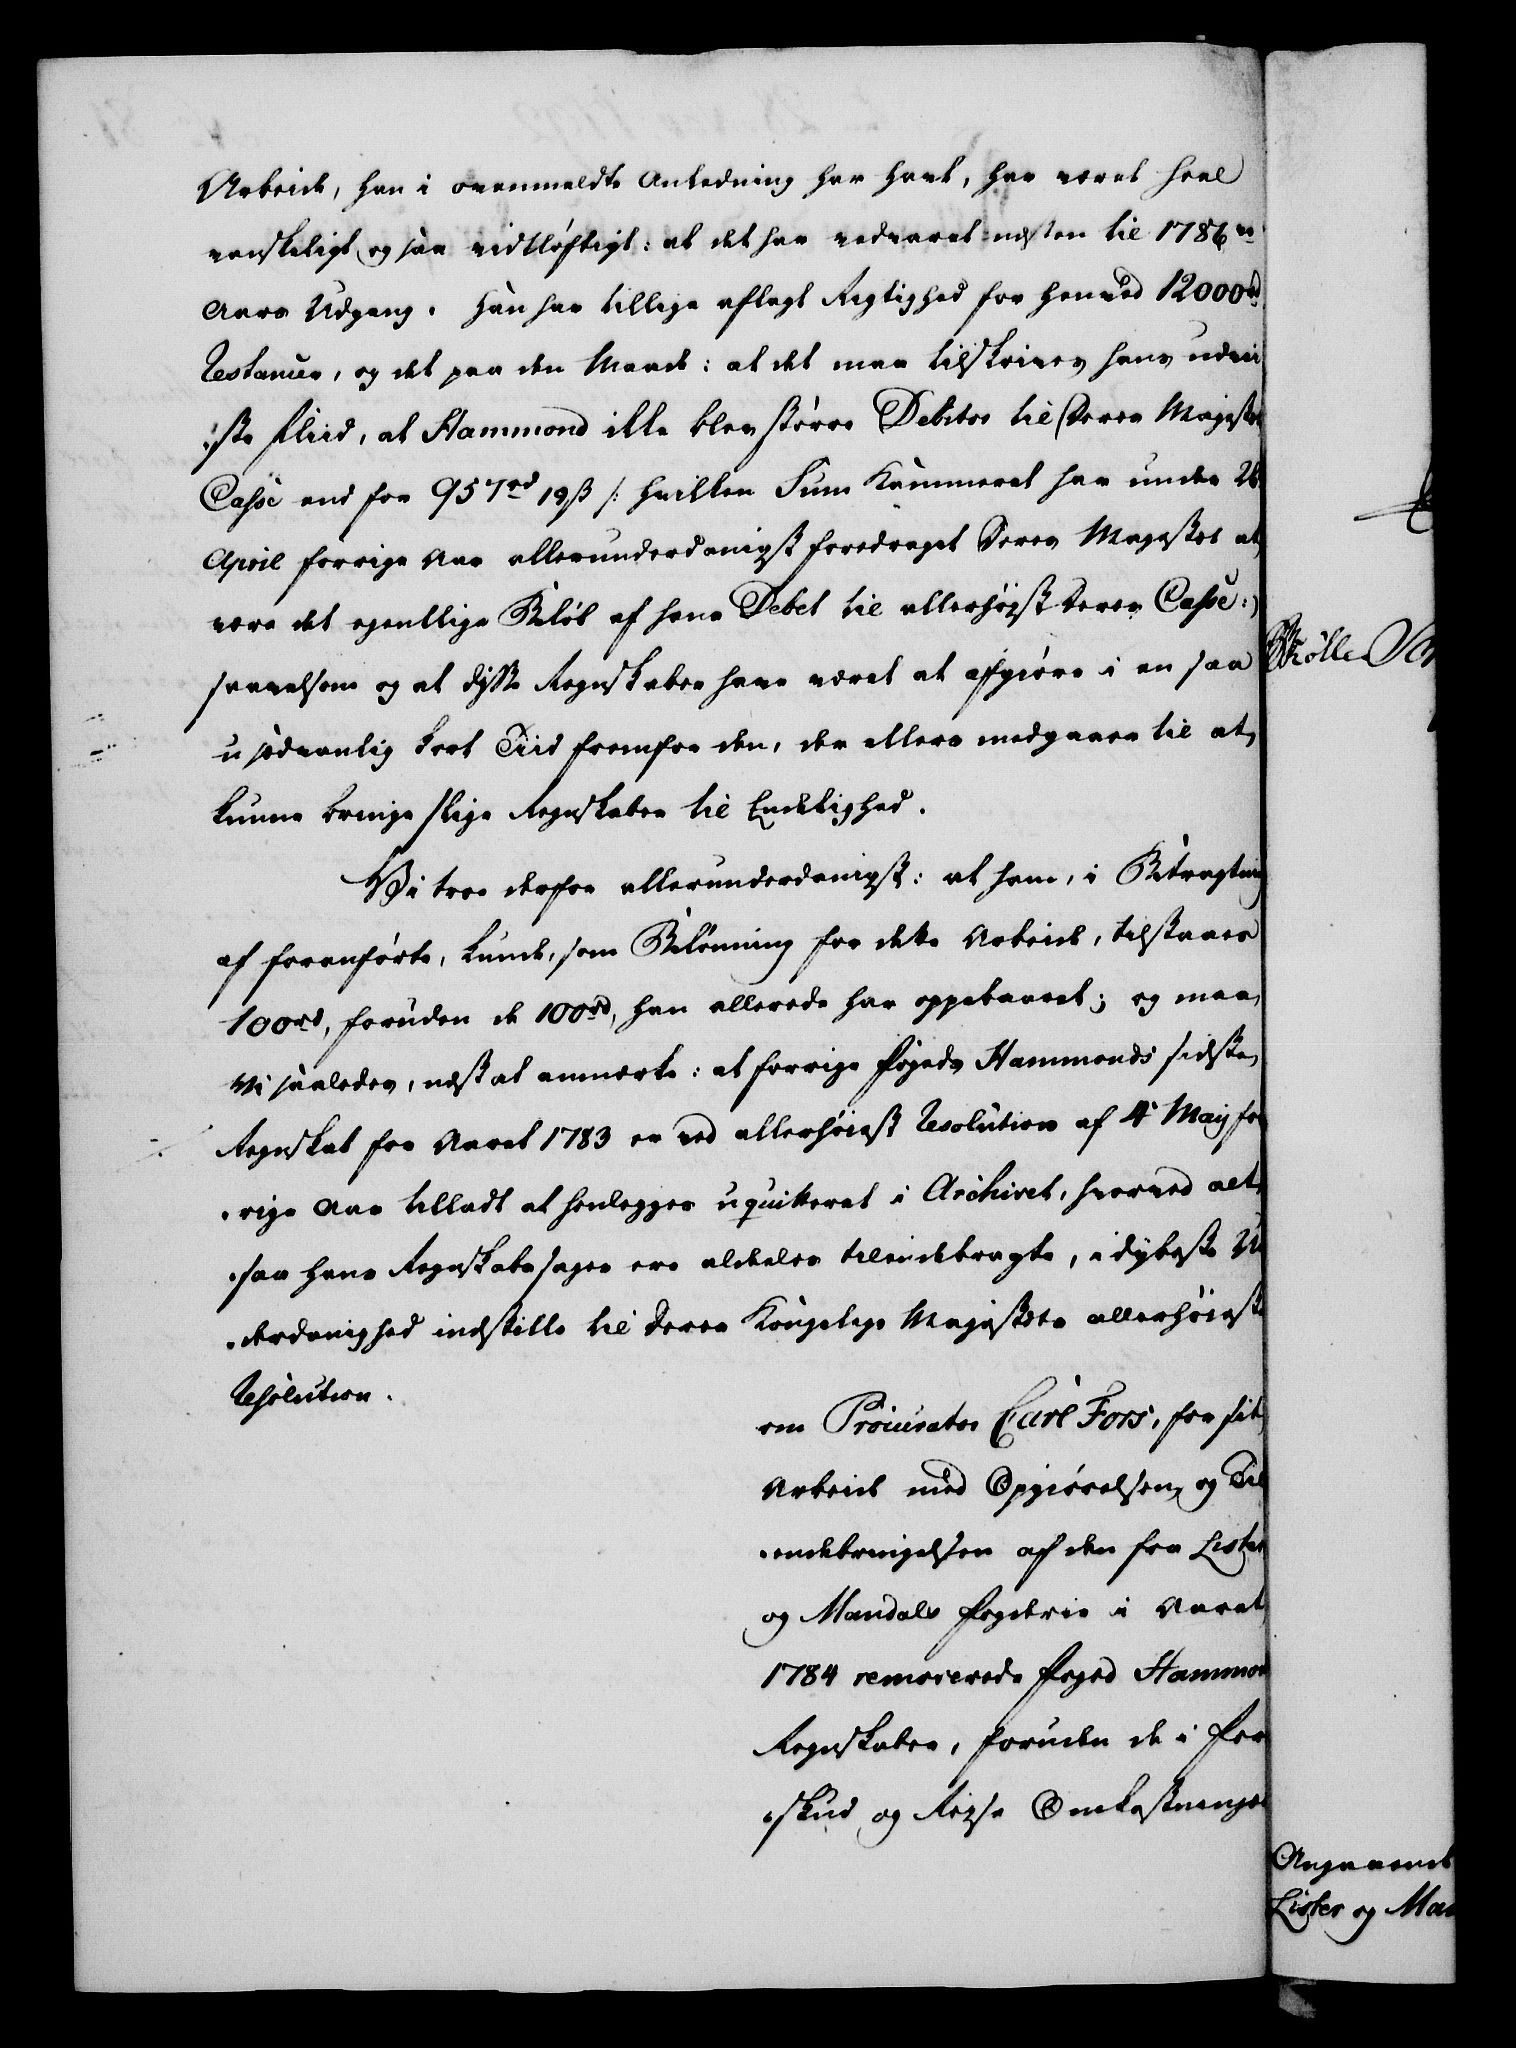 Arbeide, han i ovenmeldte Anledning har havt, har været heel
vanskeligt og saa vidtløftigt: at det har vedvaret næsten til 1786
Aars Udgang. Han har tillige aflagt Rigtighed for henved 12000rd
Restancer, og det paa den Maade: at det maa tilskrives hans udvii
:ste Fliid, at Hammond ikke blev større Debitor til Deres Majestæts
Casse end for 957rd 19ß /: hvilken Sum Kammeret har under 26
April forrige Aar allerunderdanigst foredraget Deres Majestet at
være det egentlige Beløb af hans Debet til allerhøjst Deres Casse :/
saavelsom og at disse Regnskaber have været at afgiøre i en saa
usædvanlig kort Tiid fremfor den, der ellers medgaaer til at
kunne bringe slige Regnskaber til Endelighed.
Vi troe derfor allerunderdanigst: at ham, i Betragtning
af foranførte, kunde, som Belønning for dette Arbeide, tilstaaes
100rd, foruden de 100rd, han allerede har oppebaaret; og maa
Vi saaledes, næst at anmærke: at forrige Fogeds Hammonds sidste
Regnskab for Aaret 1783 er ved allerhøieste Resolution af 4 Maij for
:rige Aar tilladt at henlegges uqvitteret i Archivet, hvorved alt
:saa hans Regnskabs sager ere aldeles tilendebragte, i dybeste Un
:derdanighed indstille til Deres Kongelige Majestets allerhøieste
Resolution.
om Procurator Carl Fors, for sit
Arbeide med Opgiørelsen og Til
:endebringelsen af den fra Lister
og Mandals Fogderie i Aaret
1784 removerede Foged Hammonds
Regnskaber, foruden de i For
:skud og Reyse Omkostninger
Angaaende
Lister og Man